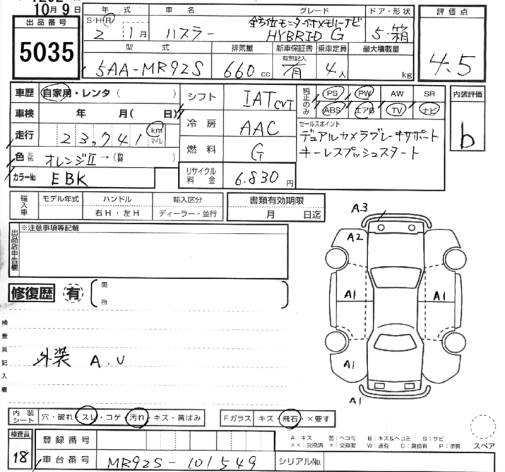 10月9日
出品番号
5035
年 式 車 名 グレード ドア・形状 評価点
S・H・R 2年 1月 ハスラー 全方位モニター付メモリーナビ HYBRID G 5・箱 4.5
型 式 排気量 新車保証書 乗車定員 最大積載量
5AA-MR92S 660cc 有無記入 有 4人 kg
車歴 自家用・レンタ( )
シフト IAT CVT
純正のみ PS PW AW SR
ABS エアB TV ナビ
内装評価
b
車検 年 月( 日)
冷房 AAC
セールスポイント
デュアルカメラブレーキサポート
キーレスプッシュスタート
走行 23,741 km マイル
燃料 G
色 オレンジⅡ→( )
カラーNo. EBK
リサイクル料金 6.830円
輸入車 モデル年式 ハンドル 輸入区分 書類有効期限
右H・左H ディーラー・並行 月 日迄
出品店申告欄 ※注意事項等記載
修復歴 有 箇所
検査員記入欄
外装 A.U
A3
A2
A1 A1
A1 A1
A1
内装シート 穴・破れ・スレ・コゲ・汚れ・キズ・黄ばみ Fガラス キズ・飛石・×要す
検査員
18
登録番号
車台番号 MR92S-101549 シリアルNo.
A:キズ U:ヘコミ B:キズ&ヘコミ S:サビ
スペア